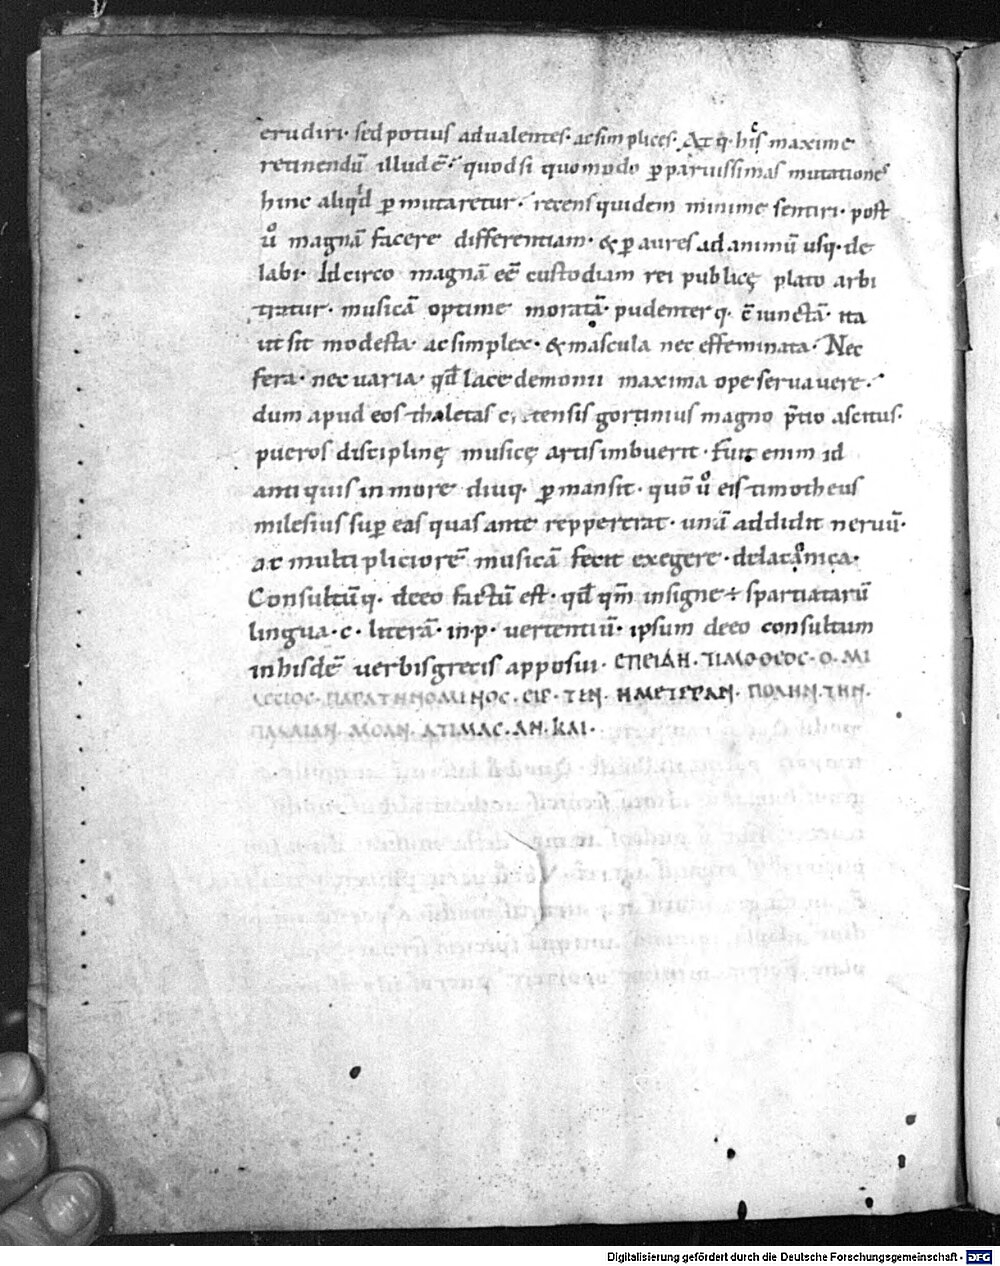 erudiri· sed potius ad ualentes· ac simplices· Atq· hiſ maxime
retinendū illud ē· quod si quomodo ꝑ paruissimas mutationes
hinc aliqͥd ꝑmutaretur· recens quidem minime sentiri· post
uͦ magnā facere differentiam· & ꝑ aures ad animū usq· de
labi· Idcirco magnā eē custodiam rei publicę plato arbi
tratur· musicā optime moratā· pudenterq· cōiunctā· ita
ut sit modesta· ac simplex· & mascula nec effeminata· Nec
fera· nec uaria· qđ lacedemonii maxima ope seruauere·
dum apud eos thaletas gortinius magno p̄tio ascitus·
pueros disciplinę musicę artis imbuerit· fuit enim id
antiquis in more diuq· ꝑmansit· quō uͦ eis timotheus
milesius sup̄ eas quas ante reppererat· unā addidit neruū·
ac multipliciorē musicā fecit exegere· de laconica·
Consultūq· de eo factū est· qđ qm̄ insigne ÷ spartiatarū
lingua· c· literā· in· p· uertentiū· ipsum de eo consultum
in hisdē uerbis grecis apposui· ΕΠΕΙΔΗ· ΤΙΜΟΘΕΟC· Ο· ΜΙ
ΠΑΡΑ· ΕΙΡ· ΤΕΝ· ΗΜΕΤΕΡΑΝ· ΠΟΛΗΝ· ΤΗΝ·
ΠΑΛΑΙΑΝ· ΜΟΑΝ· ΑΤΙΜΑC· ΑΝ· ΚΑΙ·
Digitalisierung gefördert durch die Deutsche Forschungsgemeinschaft - DFG